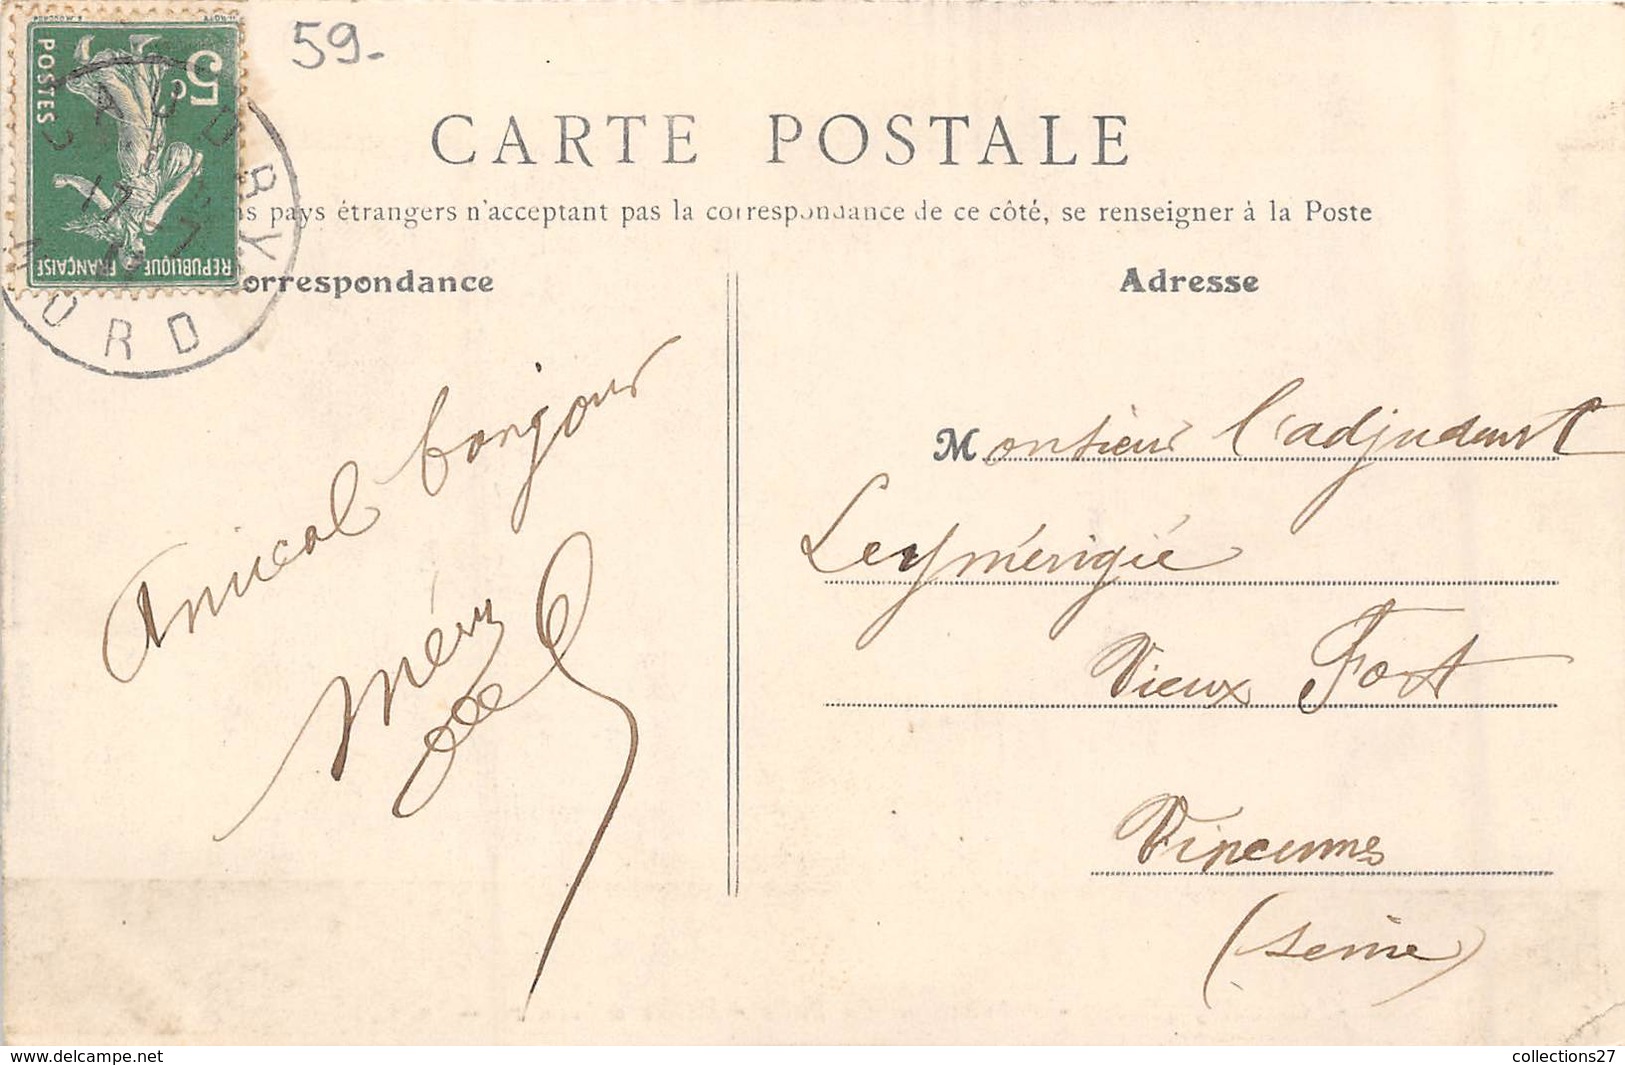 59-
5c
POSTES
REPUBLIQUE FRANÇAISE
CAUDRY
17
NORD
CARTE POSTALE
pays étrangers n'acceptant pas la correspondance de ce côté, se renseigner à la Poste
orrespondance
Adresse
Amical bonjour
Monsieur l'adjudant
Leymérigie
Vieux Fort
Vincennes
(Seine)
www.delcampe.net
collections27